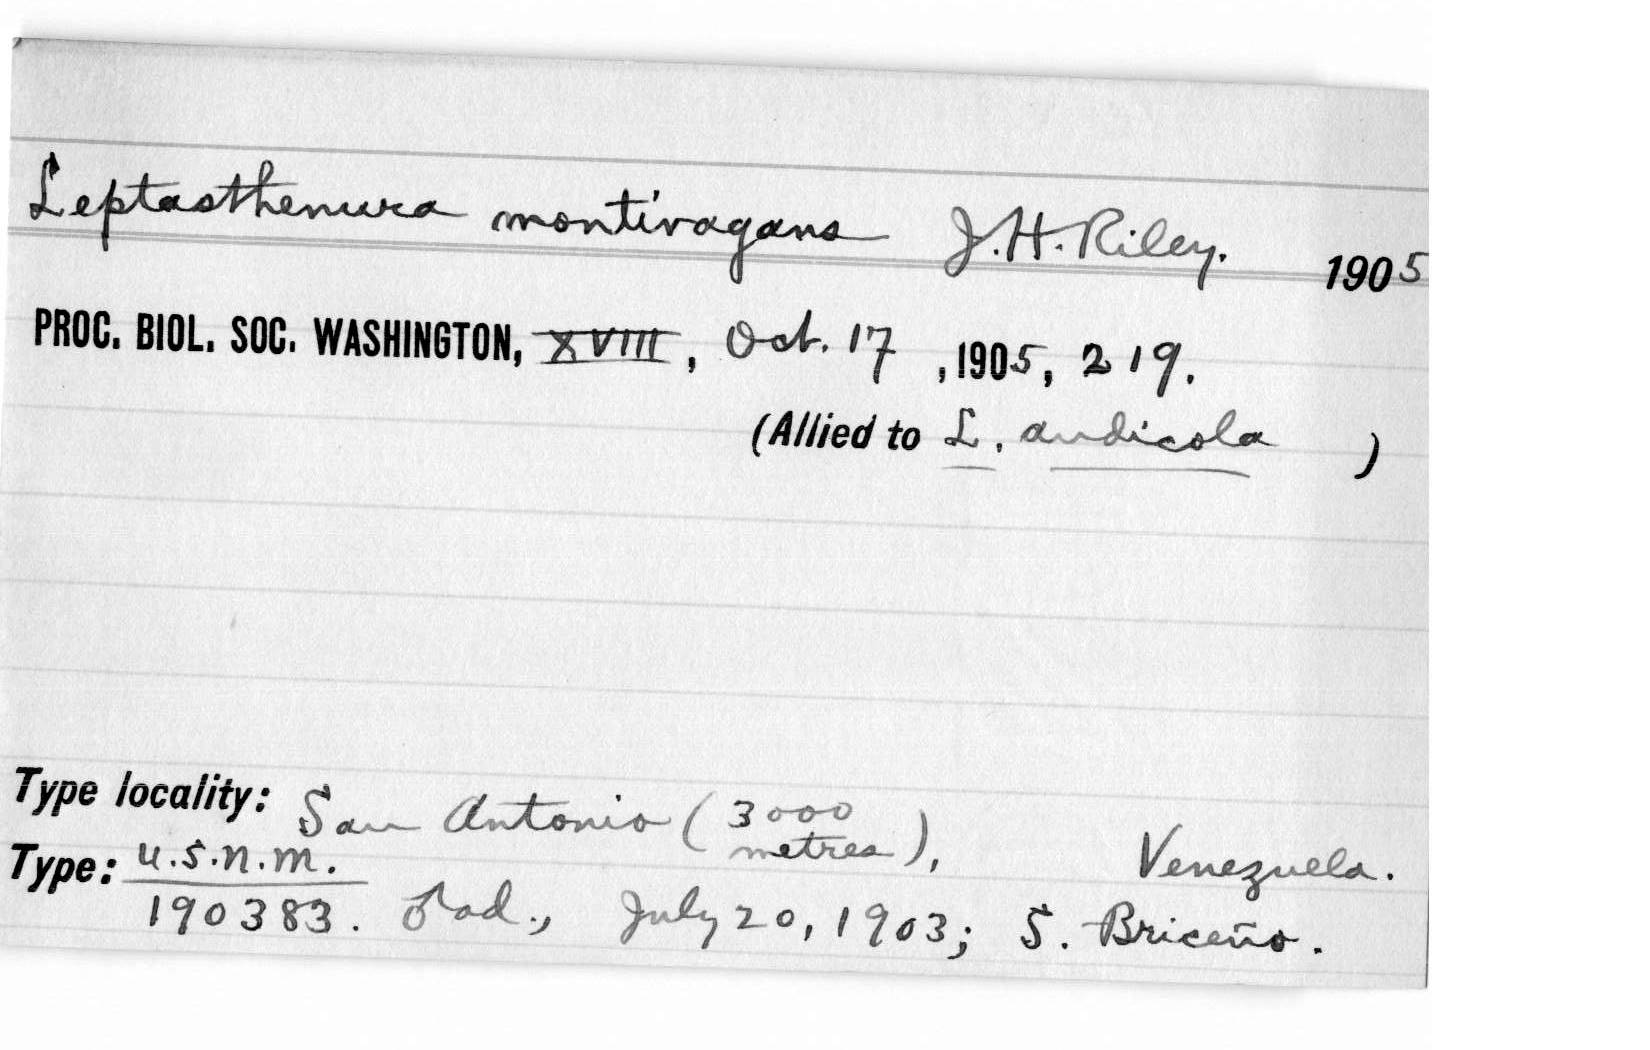 Leptasthenura montivagans J. H. Riley. 1905
PROC. BIOL. SOC. WASHINGTON, XVIII, Oct. 17, 1905, 219.
(Allied to L. andicola )
Type locality: San Antonio (3000 metres), Venezuela.
Type: U.S.N.M. 190383. ♂ ad., July 20, 1903; S. Briceño.